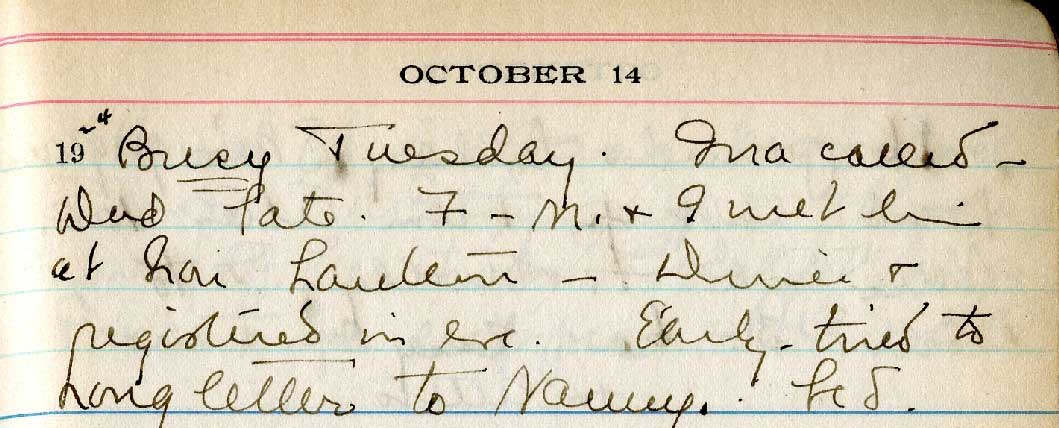 OCTOBER 14
19 24 Busy Tuesday. Ina called -
late. F - M. + I met him
at Iron Lantern - Dinner +
registered in eve. Early - tried to
Long letter to Nanny.